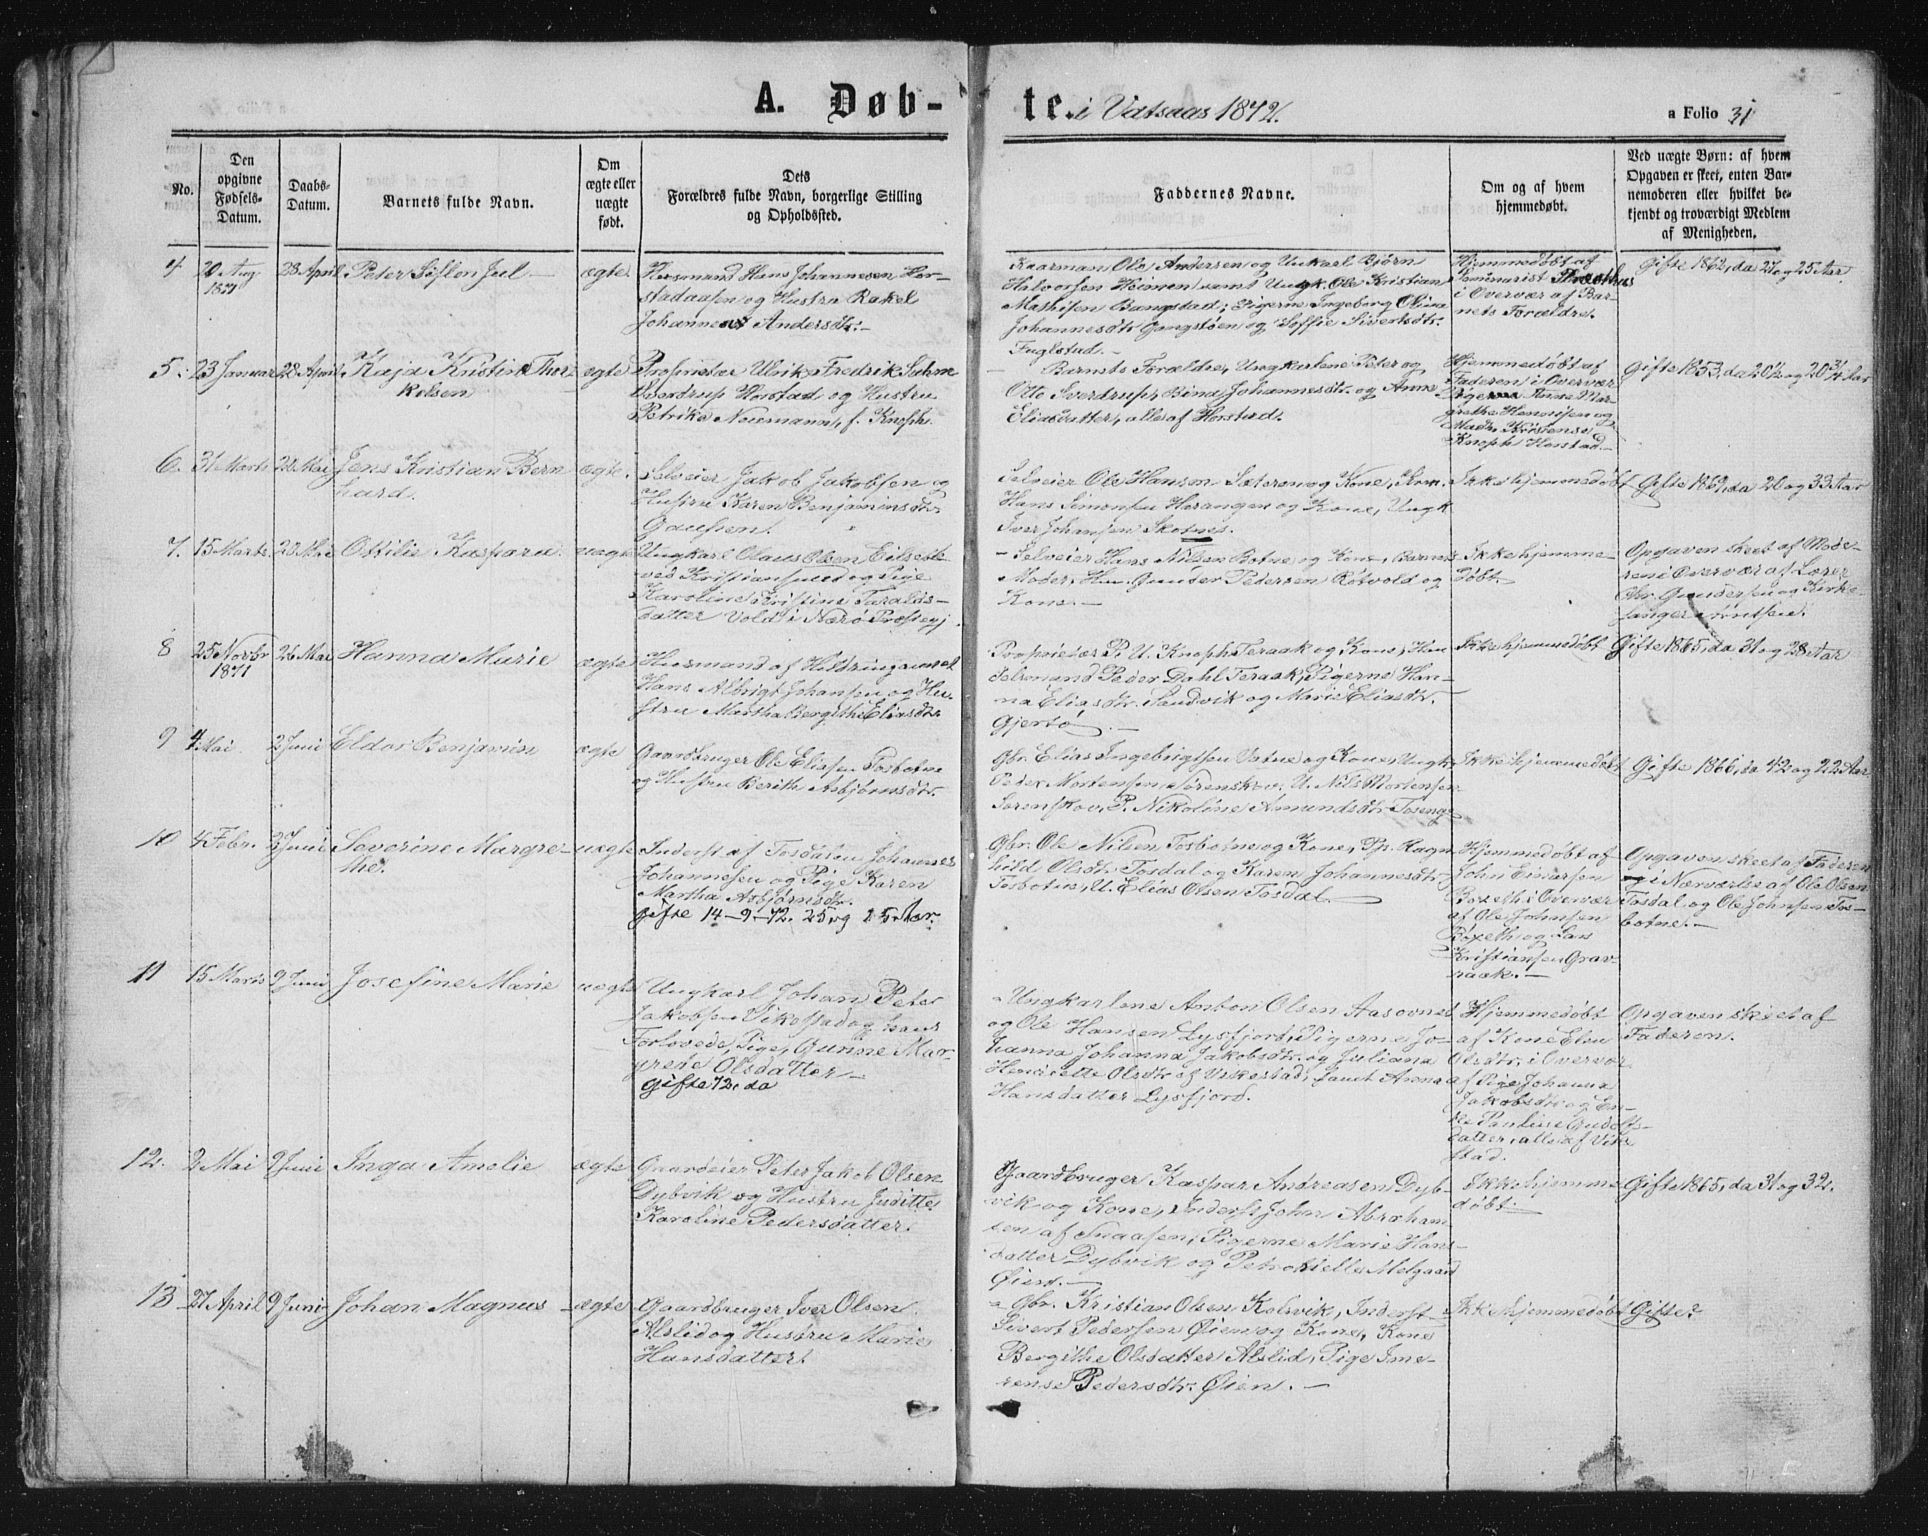 A. Døb-
te. i Vatsaas 1872.
a Folio 31
No.
Den opgivne Fødsels-Datum.
Daabs-Datum.
Barnets fulde Navn.
Om ægte eller uægte født.
Dets Forældres fulde Navn, borgerlige Stilling og Opholdssted.
Faddernes Navne.
Om og af hvem hjemmedøbt.
Ved uægte Børn: af hvem Opgaven er skeet, enten Barnemoderen eller hvilket bekjendt og troværdigt Medlem af Menigheden.
4
20 Aug
1871
28 April
Peter Juel
ægte
Husmand Hans Johannesen Hor-
stadaasen og Hustru Rakel
Johanne Andersdtr.
Kaarman Ole Andersen og Ungkarl Bjørn
Halvorsen Heimen samt Ungk. Ole Kristian
Mathisen Bangstad; Pigerne Ingeborg Olina
Johannesdtr Gangstøen og Soffie Sivertsdtr.
Fuglstad.
Hjemmedøbt af
Seminarist
i Overvær af Bar-
nets Forældre.
Gifte 1862, da 27 og 25 Aar
5.
23 Januar
28 April
Kaja Kristine Thor
kelsen
ægte
Proprietær Ulrik Fredrik Suhm
Sverdrup Horstad og Hustru
Petrike Neumann, f. Knoph.
Barnets Forældre, Ungkarlene Peter og
Otto Sverdrup, Bina Johannesdtr. og Anne
Eliasdatter, alle af Horstad.
Hjemmedøbt af
Faderen i Overvær
Pigerne Anne Mar-
grethe Henriksen og
Mad. Kristense
Knoph Horstad.
Gifte 1853, da 20½ og 20¾ Aar
6.
31 Marts
20 Mai
Jens Kristian Bern
hard.
ægte.
Selveier Jakob Jakobsen og
Hustru Karen Benjaminsdtr.
Gaufsem.
Selveier Ole Hansen Sæteren og Kone,
Hans Simonsen Horangen og Kone, Ungk
Iver Johansen Skotnes.
Ikke hjemmedøbt
Gifte 1869, da 20 og 33 Aar
7.
15 Marts
20 Mai
Ottilie Kaspara.
uægte
Ungkarl Olaus Olsen Eilsette
ved Kristiansund og Pige
Karoline Kristine Taralds-
datter Vold i Nærø Præstegj.
Selveier Hans Nilsen Botne og Kone, Barnets
Moder, Gunder Pedersen Røtvold og
Kone.
Ikke hjemme-
døbt
Opgaven skeet af Mode-
ren i Overvær af Lærer
Chr. Gundersen og Kirke-
sanger
8
25 Novbr
1871
26 Mai
Hanna Marie
ægte
Husmand af Hildringaunet
Hans Albrigt Johansen og Hu-
stru Martha Bergithe Eliasdtr.
Proprietær P. U. Knoph Teraak og Kone, Han
delsmand Peder Dahl Teraak, Pigerne Han-
na Eliasdtr. Sandvik og Marie Eliasdtr.
Gjertø.
Ikke hjemmedøbt
Gifte 1865, da 31 og 28 Aar
9
4 Mai
2 Juni
Eldor Benjamin
ægte
Gaardbruger Ole Eliasen Tosbotne
og Hustru Berith Asbjørnsdtr.
Gbr. Elias Ingebrigtsen Vatne og Kone, Ungk.
Peder Mortensen Sørenskov, U. Nils Mortensen
Sørenskov, P. Nikoline Amundsdtr. Tosenge
Ikke hjemmedøbt
Gifte 1866, da 42 og 22 Aar
10
4 Febr.
2 Juni
Severine Margre-
the.
uægte
Inderst af Tosdalen Johannes
Johannesen og Pige Karen
Martha Asbjørnsdtr.
gifte 14-9-72. 25 og 25 Aar.
Gbr. Ole Nilsen Tosbotne og Kone, Pp. Ragn
hild Olsdtr. Tosdal og Karen Johannesdtr.
Tosbotn, U. Elias Olsen Tosdal.
Hjemmedøbt af
John Einarsen
Røxeth i Overvær
af Ole Johnsen
Røxeth og Lars
Kristiansen Grav-
naak.
Opgaven skeet af Faderen
i Nærværelse af Ole Olsen
Tosdal og Ole Johnsen Tos-
botne.
11
15 Marts
9 Juni
Josefine Marie
uægte
Ungkarl Johan Peter
Jakobsen Vikestad og hans
Forlovede, Pige, Gurine Mar-
grete Olsdatter
gifte 72, da
Ungkarlene Anton Olsen Aasovnet
og Ole Hansen Lysfjord, Pigerne Jo-
hanna Johanna Jakobsdtr. og Juliana
Henriette Olsdtr. af Vikestad, samt Anna
Hansdatter Lysfjord.
Hjemmedøbt
af Kone Elen
Olsdtr. i Overvær
af Pige Johanna
Jakobsdtr. og
Pauline Gudolfs-
datter, alle af Vike
stad.
Opgaven skeet af
Faderen.
12.
2 Mai
9 Juni
Inga Amelie
ægte
Gaardeier Peter Jakob Olsen
Dybvik og Hustru Juditte
Karoline Pedersdatter.
Gaardbruger Kaspar Andreasen Dyb-
vik og Kone, Inderst John Abraham
sen af Snaasen, Pigerne Marie Hans-
datter Dybvik og Petronelle Melgaard
Øien.
Ikke hjemme
døbt.
Gifte 1865, da 31 og 32.
13
27 April
9 Juni
Johan Magnus
ægte
Gaardbruger Iver Olsen
Alslid og Hustru Marie
Hansdatter.
Gbr. Kristian Olsen Kolsvik, Inderst
Sivert Pedersen Øien og Kone, Kone
Bergithe Olsdatter Alslid, Pige Ime-
rense Pedersdtr. Øien.
Ikke hjemmedøbt
Gifte?